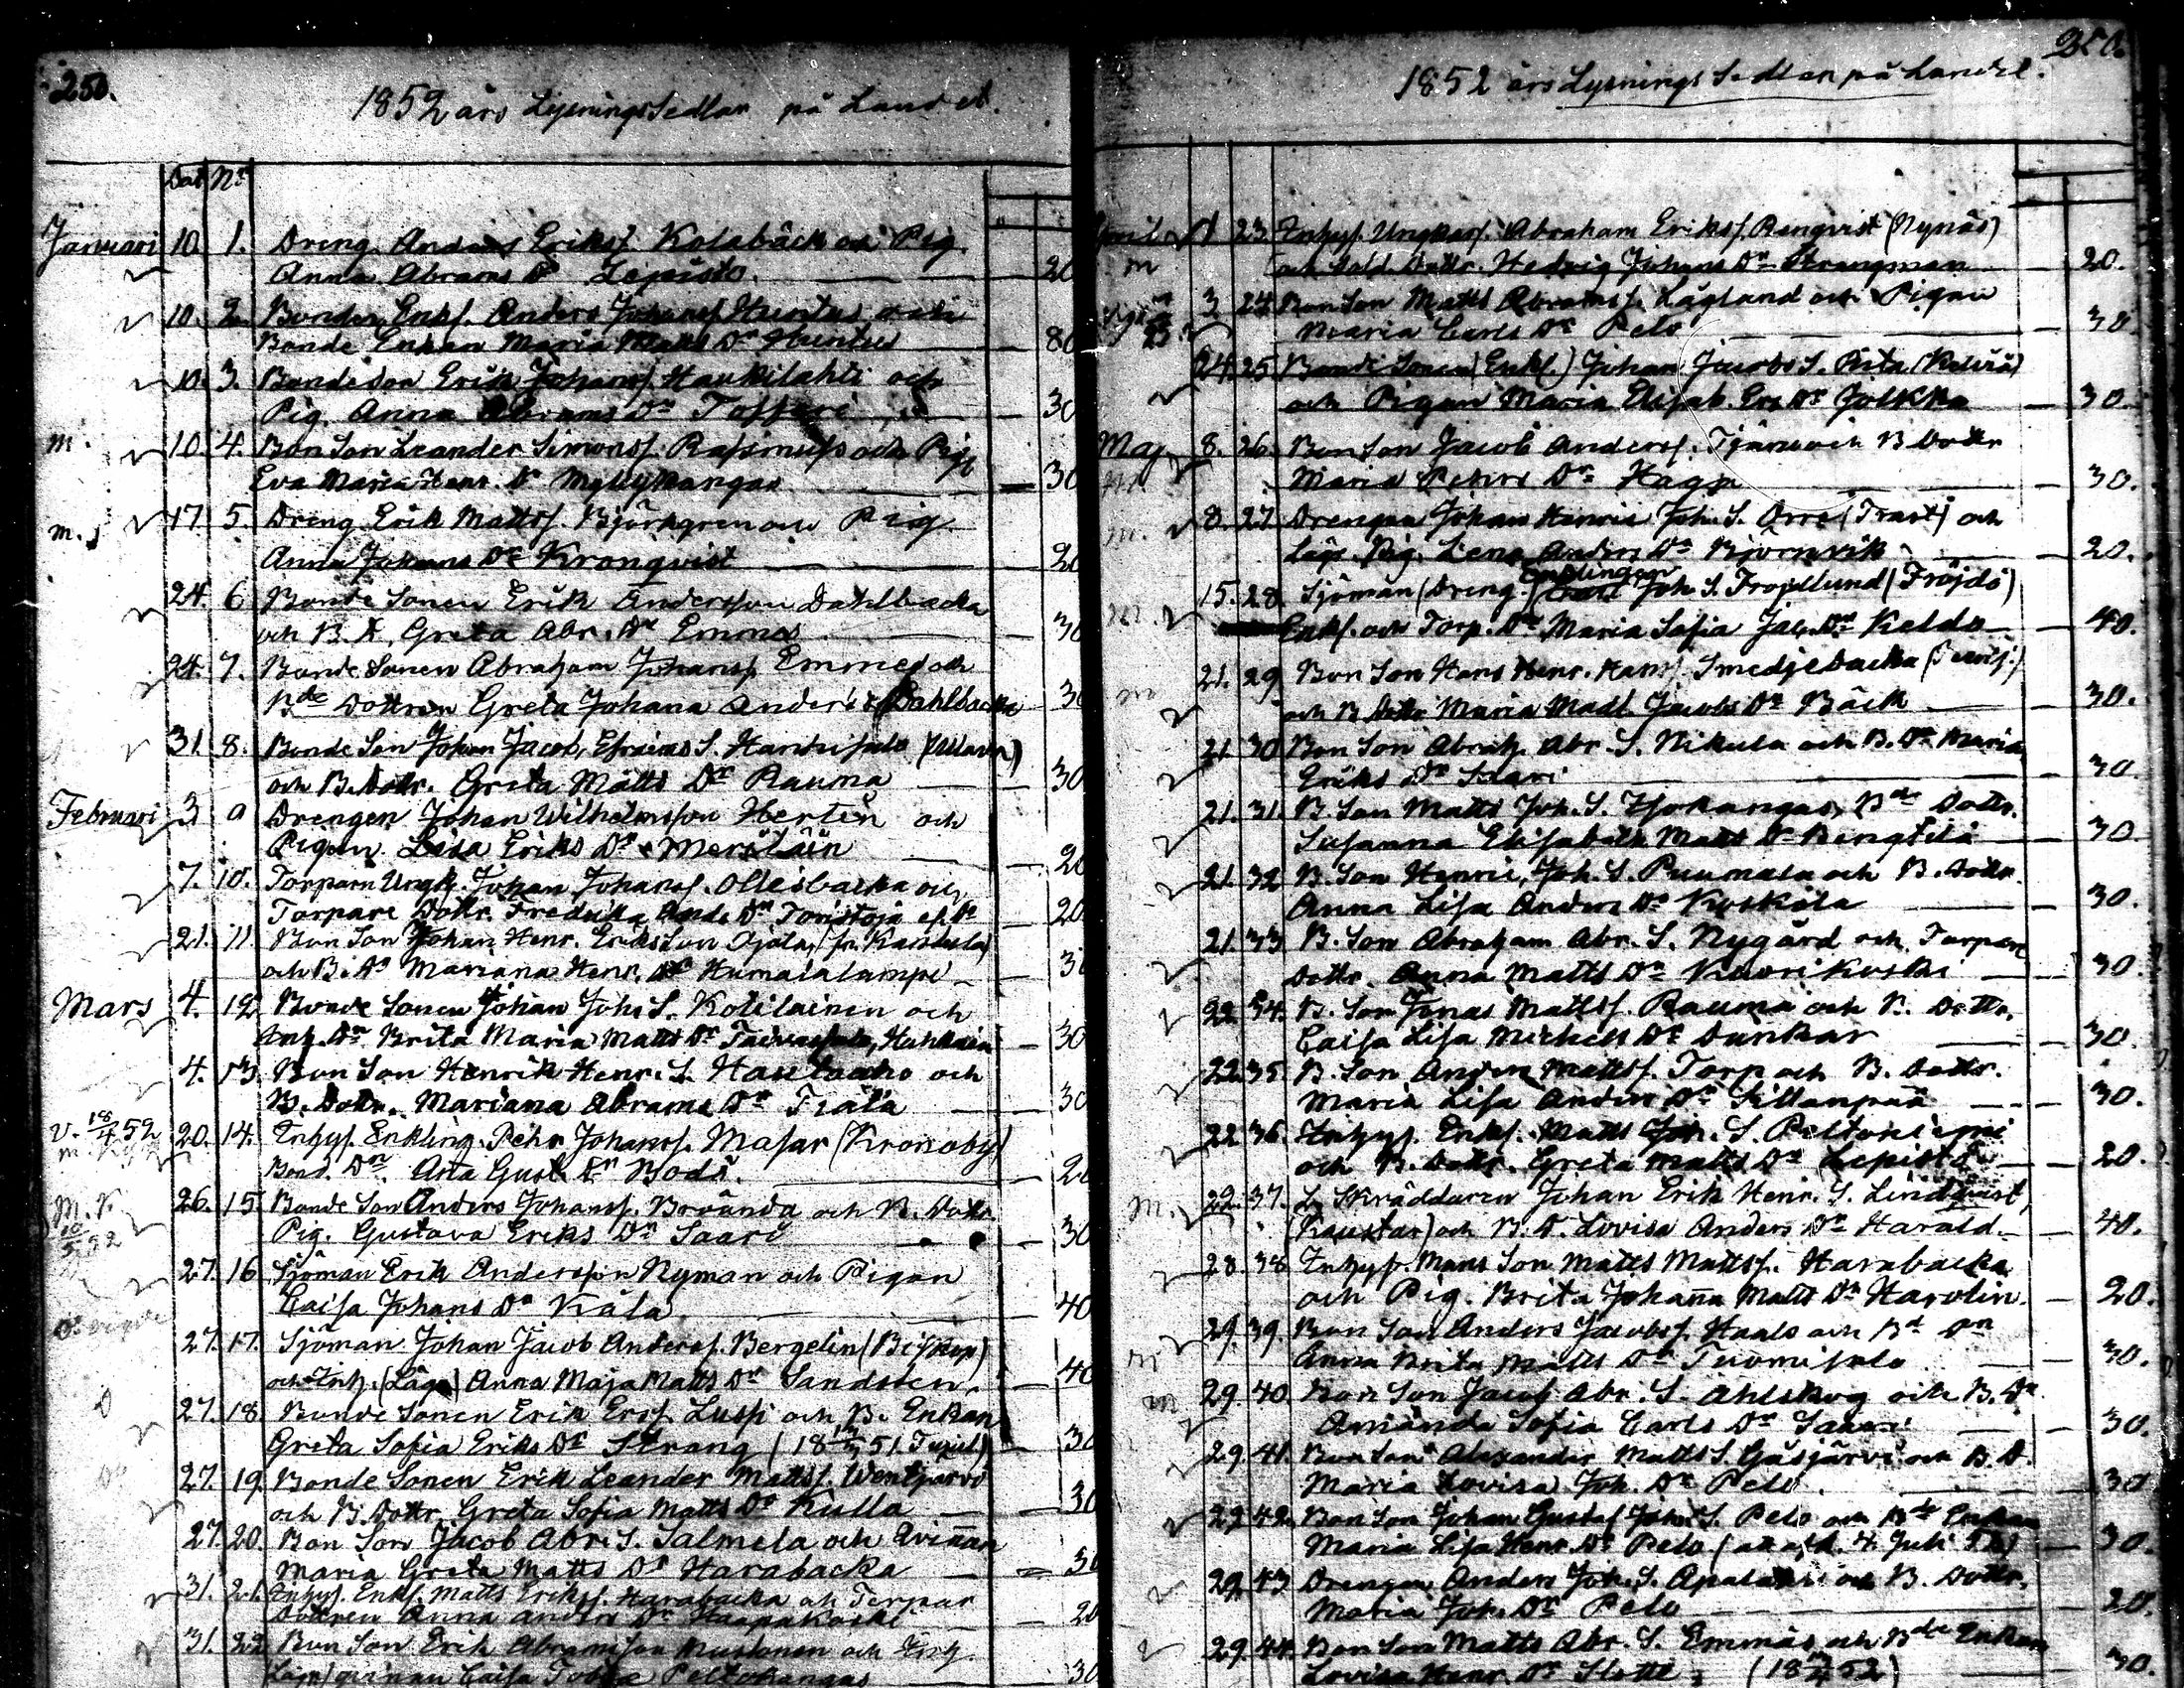 250.
1852 års LysningsSedlar på Landet.
Dat. No
Januari 10. 1. Dreng. Anders Erikss. Kolabäck och Pig.
Anna Abrams Dr Lepistö 20
10. 2. Bonden Enkl. Anders Johanss. Huntus och
Bonde Enkan Maria Matts Dr Huntus 80
10. 3. Bondeson Erik Johanss. Haukilahti och
Pig. Anna Abrams Dr 30
m. 10. 4. Bon Son Leander Simonss. Rasmuss och Pig.
Eva Maria Henr. Dr Myllykangas 30
m. 17. 5. Dreng Erik Mattss. Björkgren och Pig.
Anna Johans Dr Kronqvist 20
24. 6 Bonde Sonen Erik Andersson Dahlbacka
och B. D. Greta Abr. Dr Emmes 30
24. 7. Bonde Sonen Abraham Johanss. Emmes och
Bde Dottren Greta Johana Anders Dr Dahlbacka 30
31. 8. Bonde Son Johan Jacob, Efraims S. (Ullava)
och B. Dottr. Greta Matts Dr Rauma 30
Februari 3 9 Drengen Johan Wilhelmsson Hertén och
Pigan Lisa Eriks Dr Meriläin 20
7. 10. Torparn Ungk. Johan Johanss. Ollisbacka och
Torpare Dottr. Fredrika Ands Dr 20
21. 11. Bon Son Johan Henr. Eriksson Ojala,
och B. Dr Mariana Henr. Dr Humalalampi 30
Mars 4. 12 Bonde Sonen Johan Johs S. Kotilainen och
Inh. Dr Brita Maria Matts Dr 30
4. 13. Bon Son Henrik Henr. S. Hautaaho och
B. Dottr. Mariana Abrams Dr Träla 30
v. 18/4 52 20. 14. Inhys. Enkling. Pehr Johanss. Masar (Kronoby)
Bond. Dr. Ana Gust. Dr Bodö. 20
M. 26. 15. Bonde Son Anders Johanss. Brännda och B. Dottr.
Pig. Gustava Eriks Dr Saari 30
27. 16 Sjöman Erik Andersson Nyman och Pigan
Caisa Johans Dr Käla 40
27. 17. Sjöman Johan Jacob Anderss. Bergelin (Biskop)
och Inh. (Läga) Anna Maja Matts Dr Sandsten. 40
27. 18 Bonde Sonen Erik Erss. Lussi och B. Enkan
Greta Sofia Eriks Dr Strang 30
27. 19. Bonde Sonen Erik Leander Mattss. Wentjärvi
och B. Dottr. Greta Sofia Matts Dr Kulla 30
27. 20. Bon Son Jacob Abr. S. Salmela och Qvinnan
Maria Greta Matts Dr Harabacka 30
31. 21. Inhys. Enkl. Matts Erikss. Harabacka och Torpar
Dottren Anna Anders Dr Haapakoski 20
31. 22 Bon Son Erik Abramsson och Inh.
qvinnan Caisa Peltokangas 30
250.
1852 års LysningsSedlar på Landet.
April 23. Inhys. Ungkarl. Abraham Erikss. Renqvist (Nynäs)
m och Sold. Dottr. Hedvig Johans Dr Strangman 20.
3 24 Bon Son Matts Abramss. Lågland och Pigan
Maria Carls Dr Pelo 30
24. 25. Bonde Sonen (Enkl.) Johan Jacobs S. (Kelviå)
och Pigan Maria Elisab. Ers Dr Jolkka 30.
Maj 8. 26. Bon Son Jacob Anderss. Tjäru och B. Dottr
Maria Pehrs Dr Haga 30.
m. 8. 27. Drengen Johan Henric Joh. S. Orre (Trast) och
Läg. Pig. Lena Anders Dr Björnvik 20.
15. 28. Sjöman (Dreng.) Enklingen Joh. S. Frojdlund (Fröjdö)
Enkl. och Torp. Dr Maria Sofia Jac. Dr Keldo 40.
m 21. 29 Bon Son Hans Henr. Hanss. Smedjebacka
och B. Dottr Maria Madl. Jacobs Dr Bäck 30.
21. 30 Bon Son Abrah. Abr. S. Nikula och B. Dr Maria
Eriks Dr 30.
21. 31. B. Son Matts Joh. S. Isokangas, Bde Dottr.
Susanna Elisabeth Matts Dr Bengtilä 30
21. 32 B. Son Henric, Joh. S. Puumala och B. Dottr.
Anna Lisa Anders Dr Koskela 30.
21. 33 B. Son Abraham Abr. S. Nygård och Torpare
Dottr. Anna Matts Dr Kaarikoski 30.
22. 34. B. Son Jonas Mattss. Rauma och B. Dottr.
Caisa Lisa Michels Dr Dunkar 30.
22. 35 B. Son Anders Mattss. Torp och B. Dottr.
Maria Lisa Anders Dr Sillanpää 30.
22. 36. Inhys. Enkl. Matts Joh. S. Peltoniemi
och B. Dottr. Greta Matts Dr Lepistö 20.
M. 22. 37. S. Skräddaren Johan Erik Henr. S. Lindqvist,
(Kaustar) och B. D. Lovisa Anders Dr Harald 40.
28. 38 Inhys. Mans Son Matts Mattss. Harabacka
och Pig. Brita Johanna Matts Dr Harolin. 20.
m 29. 39. Bon Son Anders Jacobss. Haals och Bd Dr
Anna Brita Matts Dr Tuomisalo 30.
m 29. 40. Bon Son Jacob Abr. S. Ahlskog och B. Dr
Amanda Sofia Carls Dr 30.
29. 41. Bon Son Alexander Matts S. Gåsjärvi och B. D.
Maria Lovisa Joh. Dr Pelo 30
29 42. Bon Son Johan Gustaf Johs S. Pelo och Bde Enkan
Maria Lisa Henr. Dr Pelo 30.
29. 43 Drengen Anders Joh. S. och B. Dottr.
Maria Joh. Dr Pelo 20.
29. 44. Bon Son Matts Abr. S. Emmäs och Bde Enkan
Lovisa Henr. Dr Slotte 30.